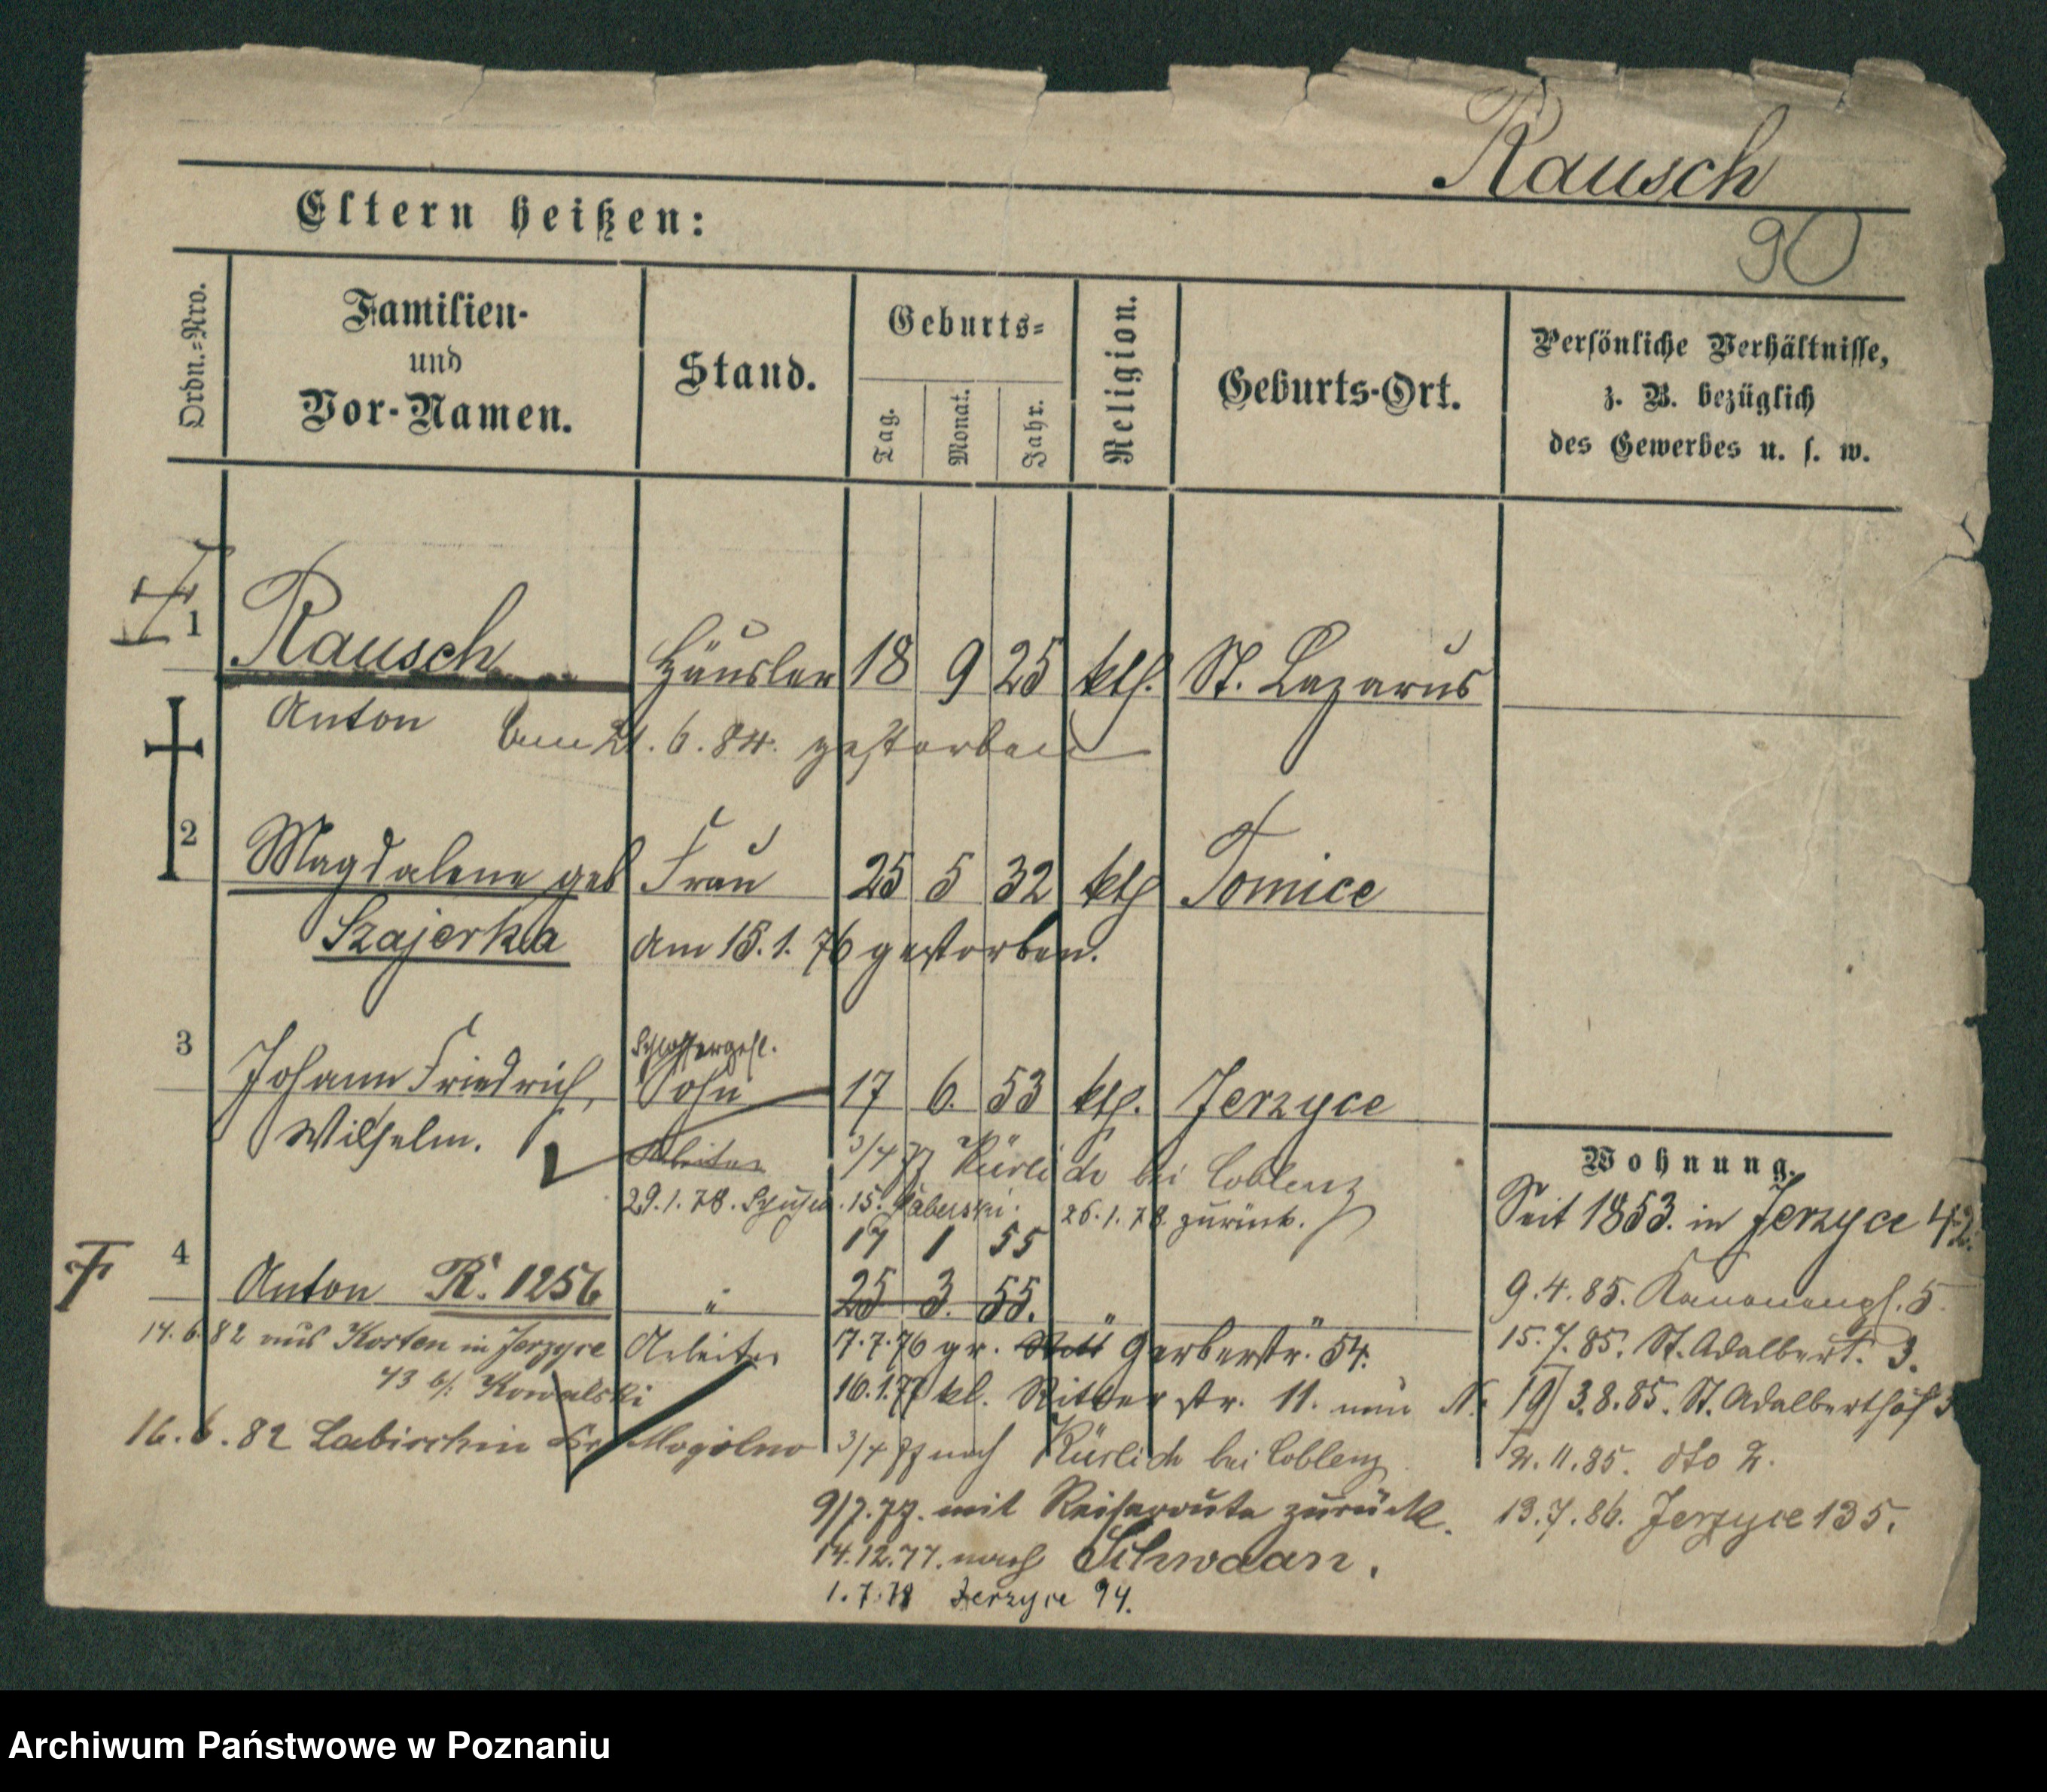 Rausch
90
Eltern heißen:
Ordn.=Nro.
Familien-
und
Vor-Namen.
Stand.
Geburts=
Tag.
Monat.
Jahr.
Religion.
Geburts-Ort.
Persönliche Verhältnisse,
z. B. bezüglich
des Gewerbes u. s. w.
1 Rausch Häusler 18 9 25 kth. St. Lazarus
Anton am 21. 6. 84. gestorben
2 Magdalene geb Frau 25 5 32 kth Tomice
Szajerka am 15. 1. 76 gestorben.
3 Johann Friedrich, Sohn 17 6. 53 kth. Jerzyce
Schlossergesl.
Wilhelm.
Arbeiter 3/4 77 Kürlich bei Coblenz
29. 1. 78. 15. 26. 1. 78. zurück.
17 1 55
4 Anton R. 1256 " 25 3. 55. " "
14. 6. 82 aus Kosten in Jerzyce
43 b/. Kowalski
16. 6. 82 Labischin Kr. Mogilno
Arbeiter
17. 7. 76 gr. Gerberstr. 54.
16. 1. 77 kl. Ritterstr. 11. nun N. 19
3/4 77 nach Kürlich bei Coblenz
9/7. 77. mit Reiseroute zurück.
14. 12. 77. nach Schwaan.
1. 7. 78 Jerzyce 94.
Wohnung.
Seit 1853. in Jerzyce 42.
9. 4. 85. Kanonenpl. 5.
15. 7. 85. St. Adalbert. 3.
3. 8. 85. St. Adalberthof 3
12. 11. 85. dto 2.
13. 7. 86. Jerzyce 135.
Archiwum Państwowe w Poznaniu